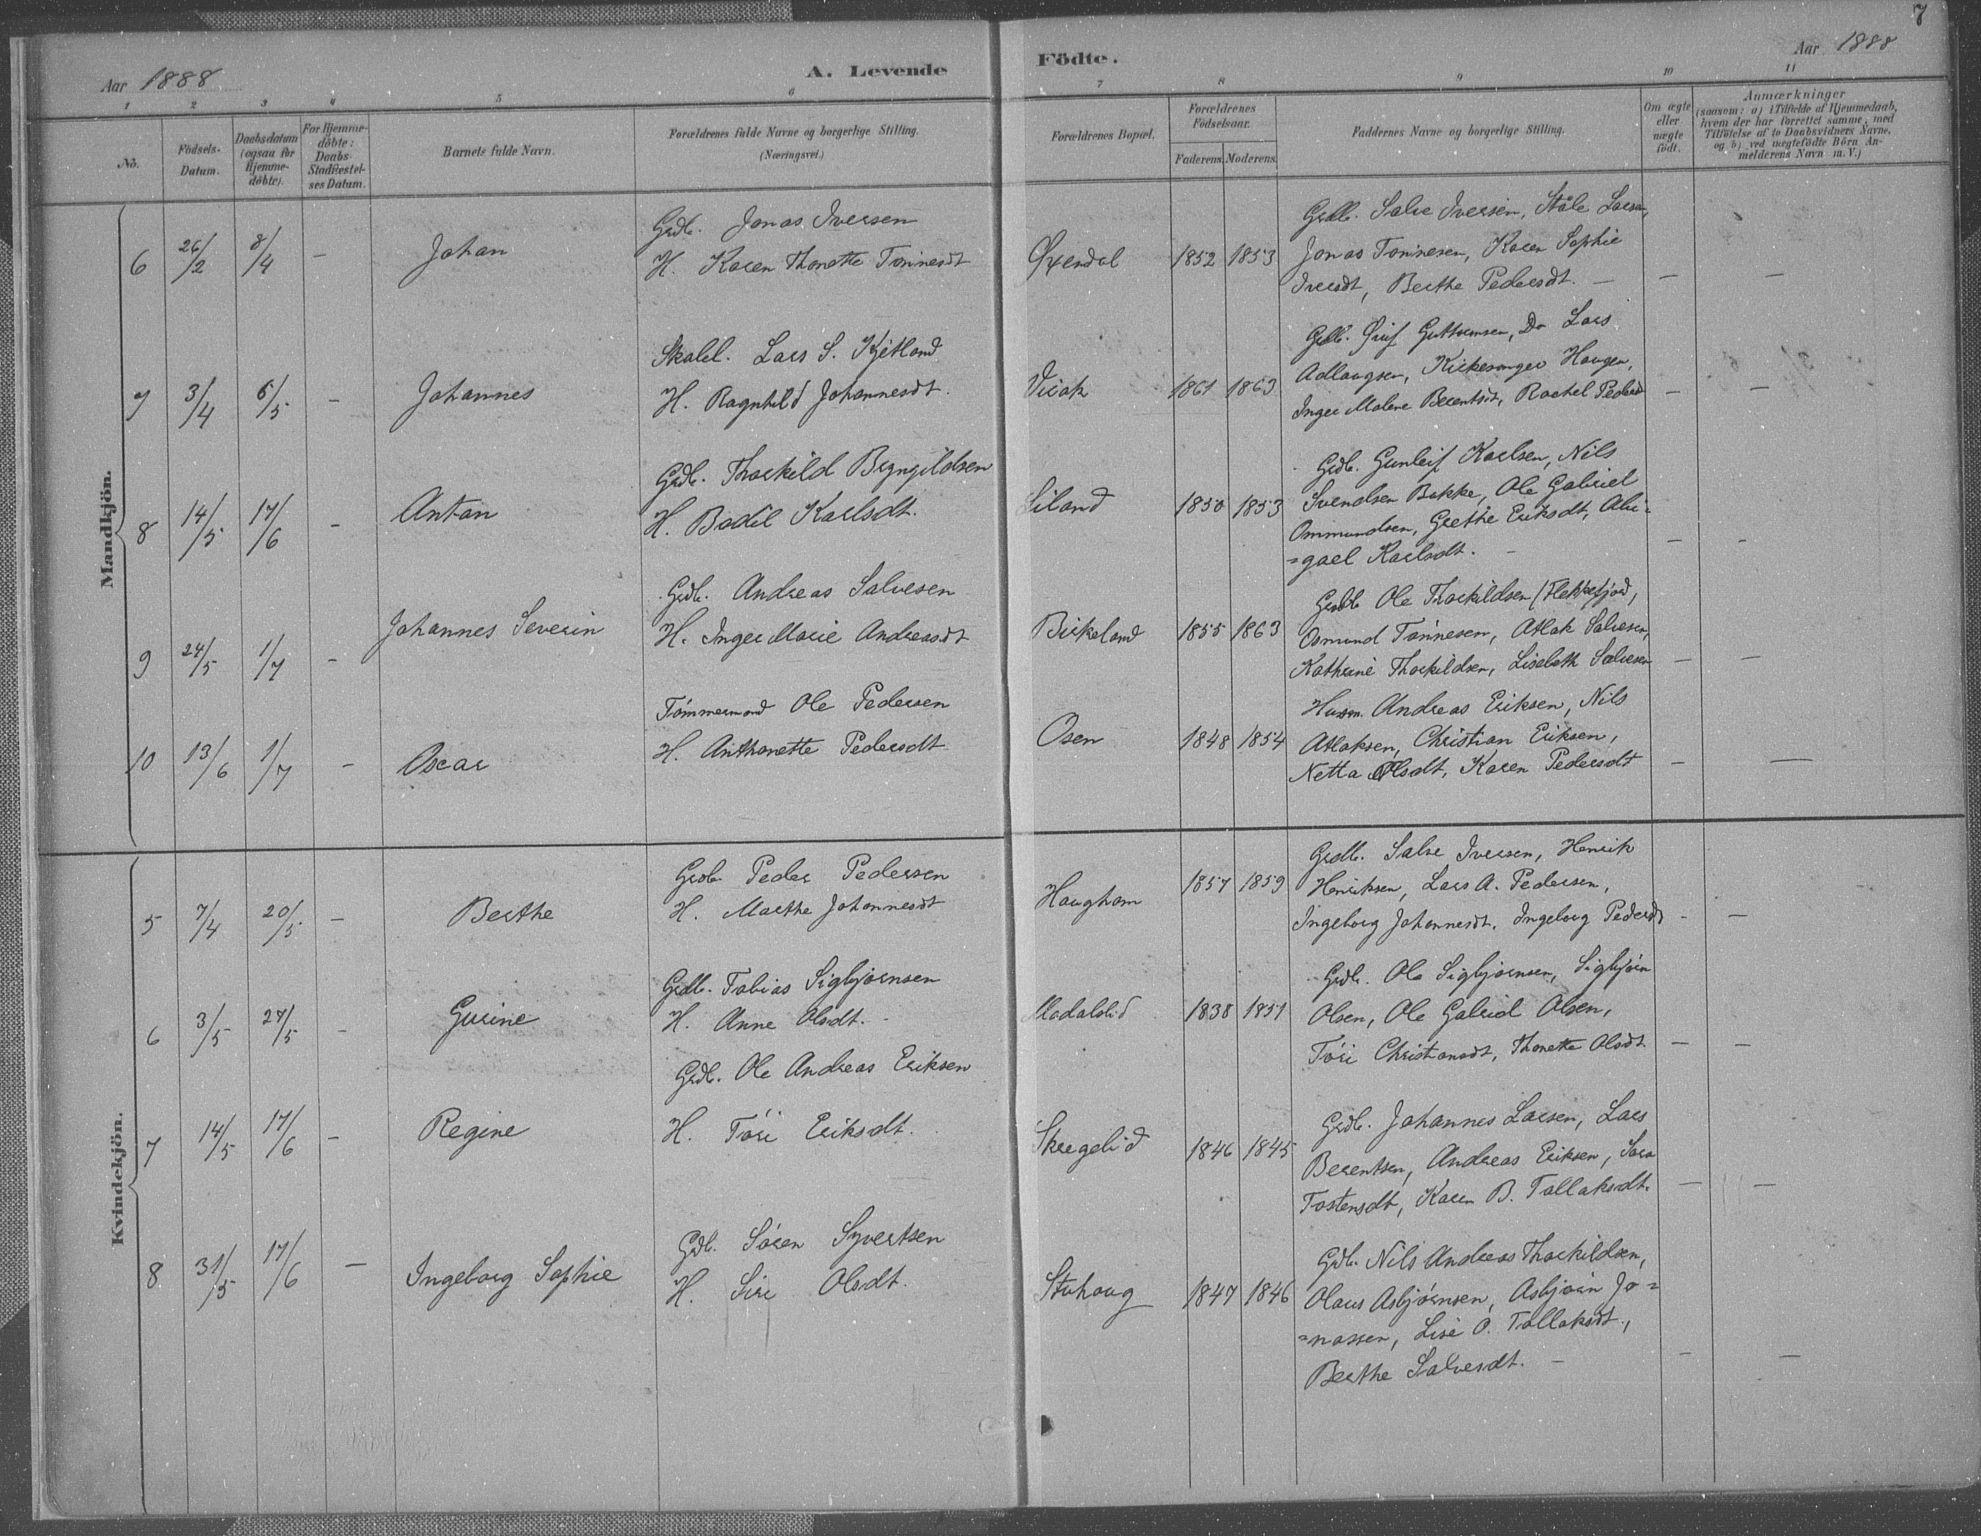 7
Aar 1888
A. Levende
Födte.
Aar 1888
1 2 3 4 5 6 7 8 9 10 11
No.
Födsels-Datum.
Daabsdatum (ogsaa for Hjemme-døbte).
For Hjemme-döbte: Daabs-Stadfæstel-ses Datum.
Barnets fulde Navn.
Forældrenes fulde Navne og borgerlige Stilling.
(Næringsvei.)
Forældrenes Bopæl.
Forældrenes Födselsaar.
Faderens. Moderens.
Faddernes Navne og borgerlige Stilling.
Om ægte eller uægte födt.
Anmærkninger
(saasom: a) i Tilfælde af Hjemmedaab,
hvem der har forrettet samme, med
Tilföielse af to Daabsvidners Navne,
og b) ved uægtefödte Börn An-
melderens Navn m. V.)
Mandkjön.
6 26/2 8/4 - Johan
Grdb. Jonas Iversen
H. Karen Thonette Tønnesdt
Øxendal 1852 1853
Grdb. Salve Iversen, Ståle Larsen,
Jonas Tønnesen, Karen Sophie
Iversdt, Berthe Pedersdt. —
7 3/4 6/5 - Johannes
Skolel. Lars S. Kjetland
H. Ragnhild Johannesdt.
Virak 1861 1863
Grdb. Guttormsen, Do Lars
Adlaugsen, Kirkesanger Haugen,
Inger Malene Berentsdt, Rachel Pedersd
8 14/5 17/6 - Anton
Grdb. Thorkild Bryngildsen
H. Bodil Karlsdt.
Liland 1850 1853
Grdb. Gunleif Karlsen, Nils
Svendsen Bakke, Ole Gabriel
Ommundsen, Grethe Eriksdt, Abi-
=gael Karlsdt. -
9 24/5 1/7 - Johannes Severin
Grdb. Andreas Salvesen
H. Inger Marie Andreasdt
Birkeland 1855 1863
Grdb Ole Thorkildsen (Flekkefjord),
Osmund Tønnesen, Atlak Salvesen,
Kathrine Thorkildsen, Lisebeth Salvesen
10 13/6 1/7 - Oscar
Tømmermand Ole Pedersen
H. Anthonette Pedersdt
Osen 1848 1854
Husm. Andreas Eriksen, Nils
Atlaksen, Christian Eriksen,
Netta Olsdt, Karen Pedersdt
Kvindekjön.
5 7/4 20/5 - Berthe
Grdb. Peder Pedersen
H. Marthe Johannesdt
Haughom 1857 1859
Grdb. Salve Iversen, Henrik
Henriksen, Lars A. Pedersen,
Ingeborg Johannesdt. Ingeborg Pedersdt
6 3/5 27/5 - Gurine
Grdb. Tobias Sigbjørnsen
H. Anne Olsdt. -
Modalslid 1838 1851
Grdb. Ole Sigbjørnsen, Sigbjørn
Olsen, Ole Gabriel Olsen,
Tøri Christensdt, Thonette Olsdt.
7 14/5 17/6 - Regine
Grdb. Ole Andreas Eriksen
H. Tøri Eriksdt.
Skregelid 1846 1845
Grdb. Johannes Larsen, Lars
Berentsen, Andreas Eriksen, Sara
Tostensdt, Karen B. Tollaksdt.
8 31/5 17/6 - Ingeborg Sophie
Grdb. Søren Syvertsen
H. Siri Olsdt.
Stuhaug 1847 1846
Grdb. Nils Andreas Thorkildsen,
Olaus Asbjørnsen, Asbjørn Jo=
=nassen, Lise O. Tollaksdt.,
Berthe Salvesdt. -